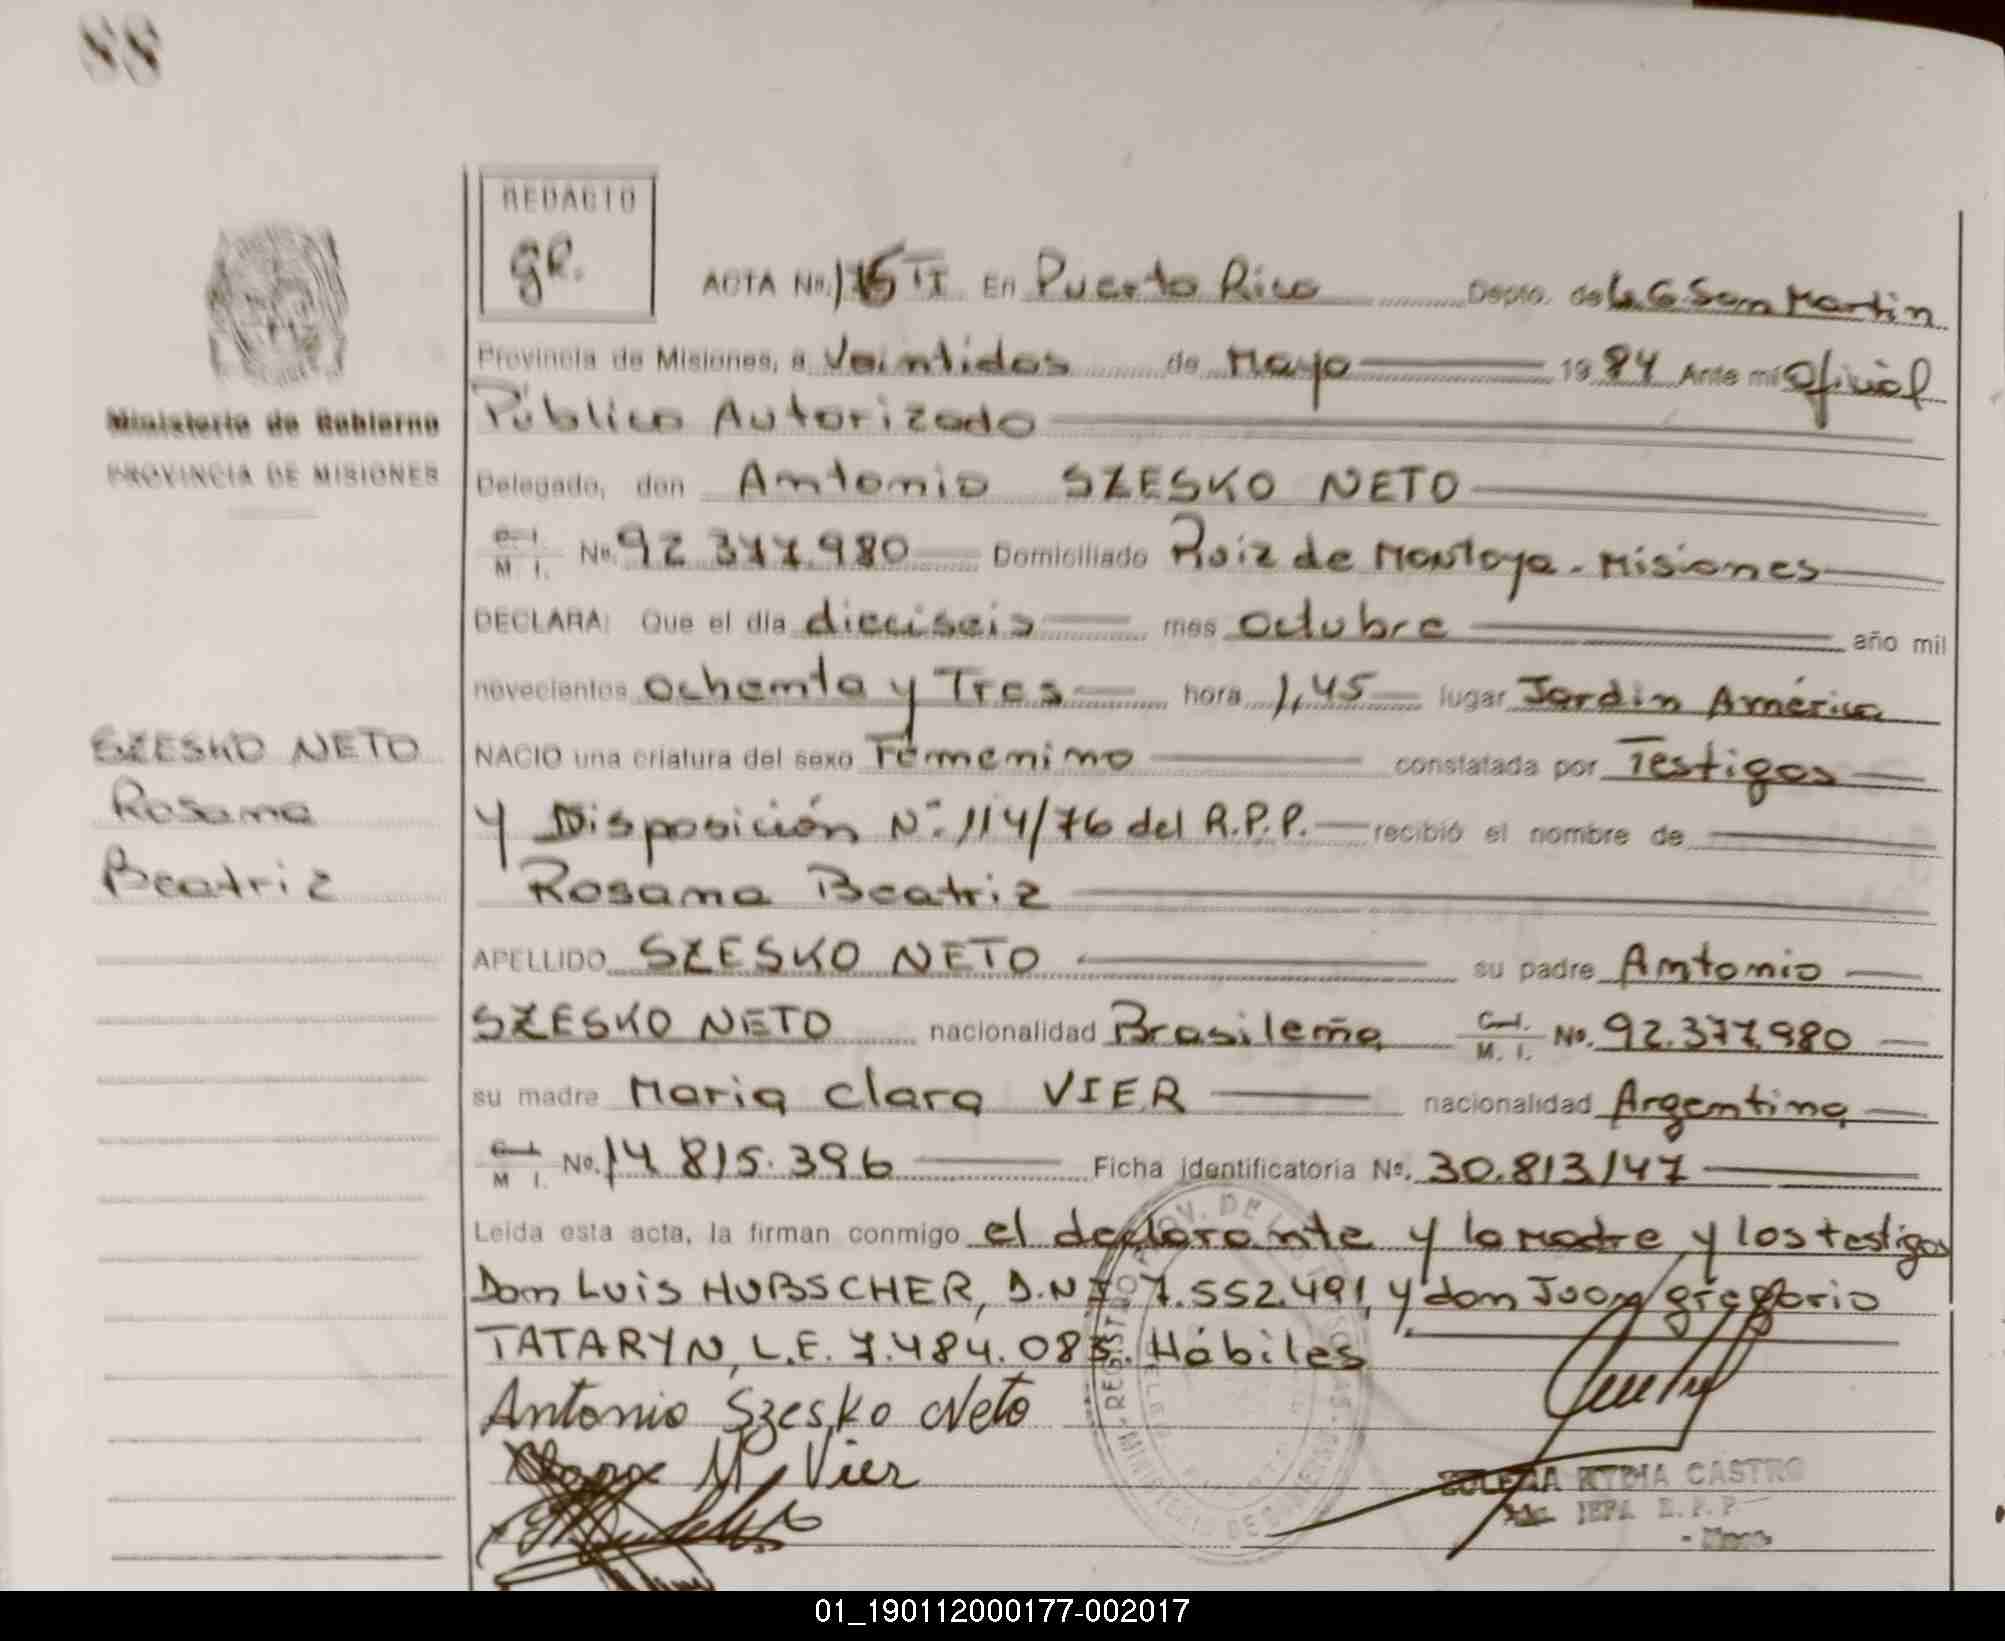 88
REDACTO
ge.
ACTA No. 175 II En Puerto Rico Depto. de L.G.San Martin
Provincia de Misiones, a Veintidos de Mayo 1984 Ante mi Oficial
Ministerio de Gobierno
Público Autorizado
PROVINCIA DE MISIONES
Delegado, don Antonio SZESKO NETO
C. I. M. I. No. 92.377.980 Domiciliado Ruiz de Montoya - Misiones
DECLARA: Que el día dieciseis mes octubre año mil
novecientos ochenta y Tres hora 1,45 lugar Jardin América
SZESKO NETO
NACIO una criatura del sexo Femenino constatada por Testigos
Rosana
y Disposición Nº 114/76 del R.P.P. recibió el nombre de
Beatriz
Rosana Beatriz
APELLIDO SZESKO NETO su padre Antonio
SZESKO NETO nacionalidad Brasileña C. I. M. I. No. 92.377.980
su madre Maria Clara VIER nacionalidad Argentina
C. I. M. I. No. 14.815.396 Ficha identificatoria No. 30.813/47
Leída esta acta, la firman conmigo el declarante y la madre y los testigos
Don Luis HUBSCHER, D.N.I 7.552.491, y don Juan gregorio
TATARYN, L.E. 7.484.083. Hábiles
Antonio Szesko Neto
M. Vier
CASTRO
01_190112000177-002017